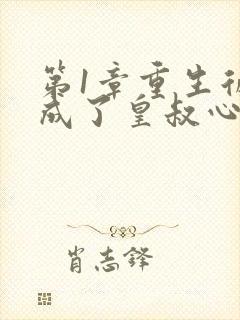 第1章重生後
成了皇叔心
肖志鋒